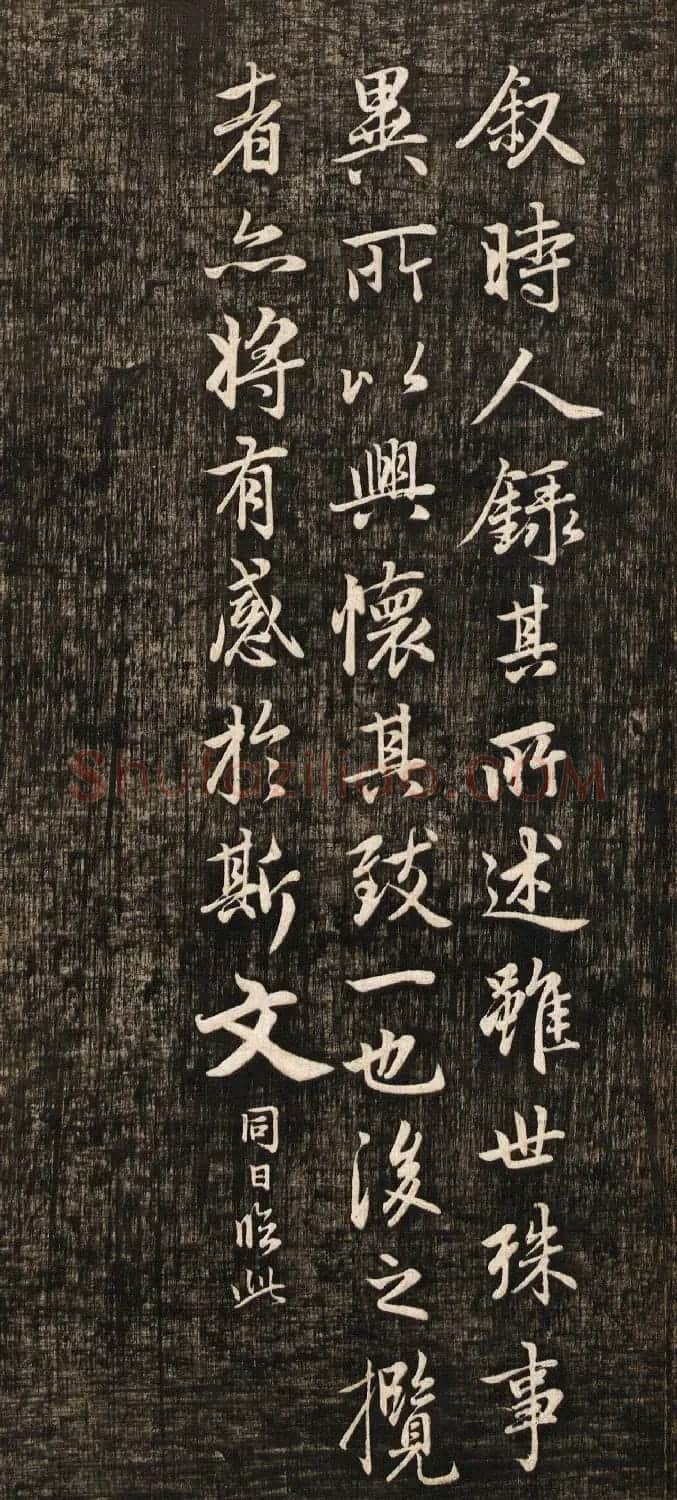 叙時人録其所述雖世殊事
異所以興懷其致一也後之攬
者亦將有感於斯文
同日臨此
Shufaziliao.COM